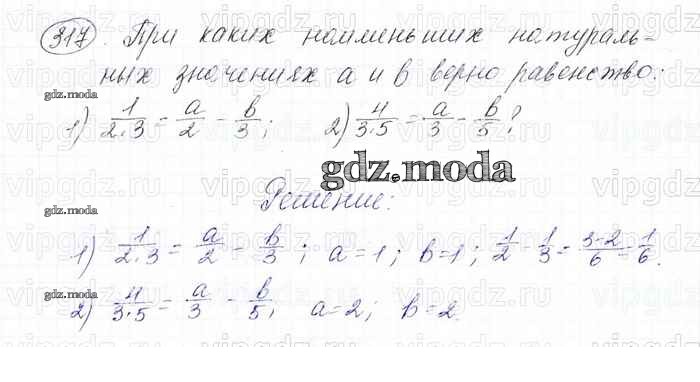 317. При каких наименьших натураль-
ных значениях a и b верно равенство:
gdz.moda
1) 1/2·3 = a/2 - b/3; 2) 4/3·5 = a/3 - b/5?
gdz.moda
gdz.moda
Решение:
1) 1/2·3 = a/2 - b/3; a=1; b=1; 1/2 - 1/3 = 3-2/6 = 1/6.
gdz.moda
2) 4/3·5 = a/3 - b/5; a=2; b=2.